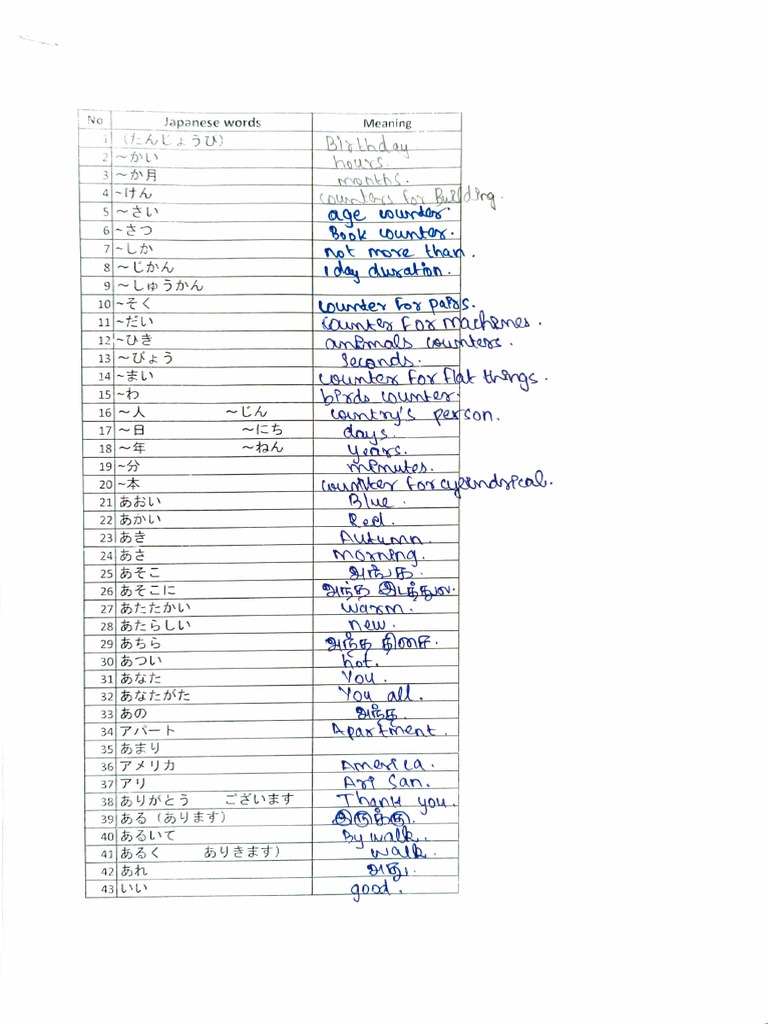 No Japanese words Meaning
1 (たんじょうび) Birthday
2 ～かい hours.
3 ～か月 months.
4 ~けん counters for Building.
5 ～さい age counter.
6 ~さつ Book counter.
7 ～しか not more than.
8 ～じかん 1 day duration.
9 ～しゅうかん
10 ~そく counter for pairs.
11 ~だい counter for machines.
12 ~ひき animals counters.
13 ～びょう Seconds.
14 ~まい counter for flat things.
15 ~わ birds counter.
16 ～人 ～じん country's person.
17 ～日 ～にち days.
18 ～年 ～ねん years.
19 ~分 minutes.
20 ~本 counter for cylindrical.
21 あおい Blue.
22 あかい Red.
23 あき Autumn.
24 あさ morning.
25 あそこ அங்க.
26 あそこに அந்த இடத்துல.
27 あたたかい warm.
28 あたらしい new.
29 あちら அந்த திசை.
30 あつい hot.
31 あなた You.
32 あなたがた You all.
33 あの அந்த.
34 アパート Apartment.
35 あまり
36 アメリカ America.
37 アリ Ari San.
38 ありがとう ございます Thank you.
39 ある（あります） இருக்கு.
40 あるいて By walk.
41 あるく ありきます） walk.
42 あれ அது.
43 いい good.